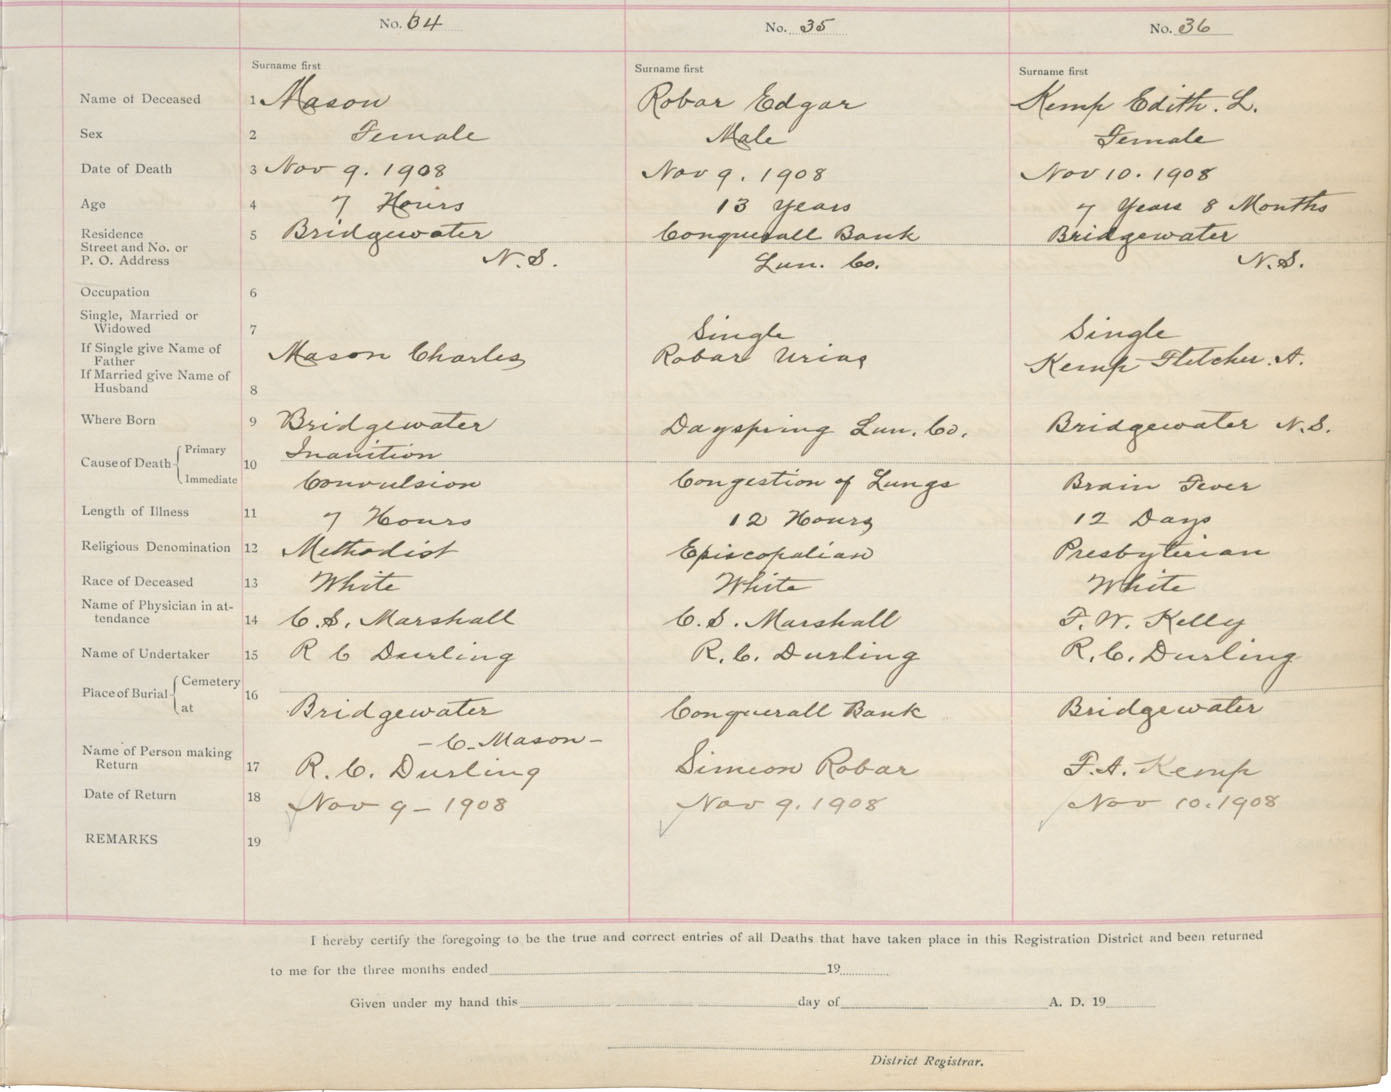 No. 34 No. 35 No. 36
Surname first Surname first Surname first
Name of Deceased 1 Mason Robar Edgar Kemp Edith. L.
Sex 2 Female Male Female
Date of Death 3 Nov 9. 1908 Nov 9. 1908 Nov 10. 1908
Age 4 7 Hours 13 Years 7 Years 8 Months
Residence 5 Bridgewater Conquerall Bank Bridgewater
Street and No. or
P. O. Address N.S. Lun. Co. N.S.
Occupation 6
Single, Married or
Widowed 7 Single Single
If Single give Name of Mason Charles Robar Urias Kemp Fletcher. A.
Father
If Married give Name of
Husband 8
Where Born 9 Bridgewater Dayspring Lun. Co. Bridgewater N.S.
Cause of Death Primary 10 Inanition
Immediate Convulsion Congestion of Lungs Brain Fever
Length of Illness 11 7 Hours 12 Hours 12 Days
Religious Denomination 12 Methodist Episcopalian Presbyterian
Race of Deceased 13 White White White
Name of Physician in at-
tendance 14 C.S. Marshall C.S. Marshall F.W. Kelly
Name of Undertaker 15 R C Durling R.C. Durling R.C. Durling
Place of Burial Cemetery 16
at Bridgewater Conquerall Bank Bridgewater
- C. Mason -
Name of Person making
Return 17 R.C. Durling Simeon Robar F.A. Kemp
Date of Return 18 Nov 9 - 1908 Nov 9. 1908 Nov 10. 1908
REMARKS 19
I hereby certify the foregoing to be the true and correct entries of all Deaths that have taken place in this Registration District and been returned
to me for the three months ended 19
Given under my hand this day of A. D. 19
District Registrar.